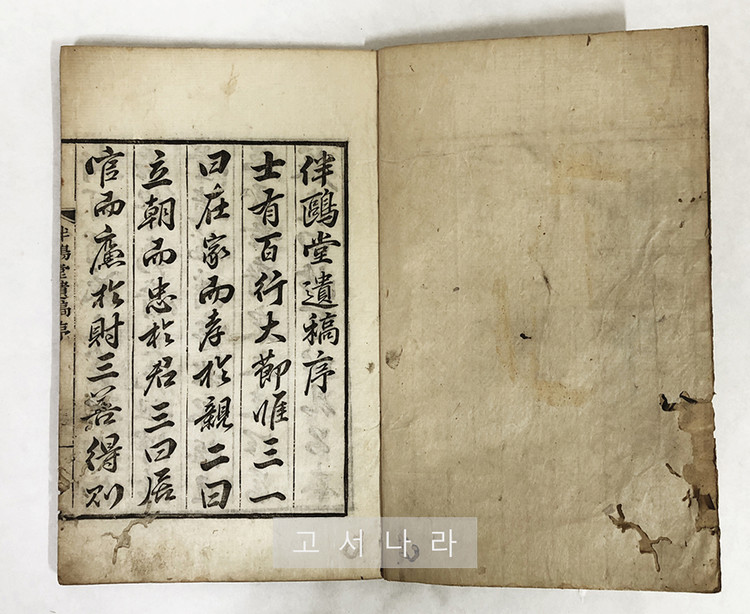 伴鷗堂遺稿序
士有百行大節惟三一
曰在家而孝於親二曰
立朝而忠於君三曰居
官而廉於財三善得則
伴鷗堂遺稿序
고서나라